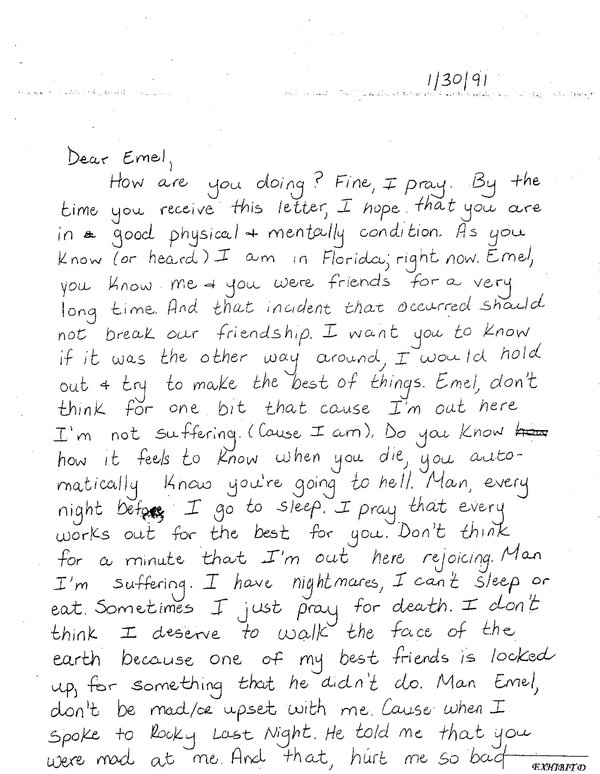 1/30/91
Dear Emel,
How are you doing? Fine, I pray. By the
time you receive this letter, I hope that you are
in a good physical + mentally condition. As you
know (or heard) I am in Florida; right now. Emel,
you know me + you were friends for a very
long time. And that incident that occurred should
not break our friendship. I want you to know
if it was the other way around, I would hold
out + try to make the best of things. Emel, don't
think for one bit that cause I'm out here
I'm not suffering. (Cause I am). Do you know how
how it feels to know when you die, you auto-
matically know you're going to hell. Man, every
night before I go to sleep. I pray that every
works out for the best for you. Don't think
for a minute that I'm out here rejoicing. Man
I'm suffering. I have nightmares, I can't sleep or
eat. Sometimes I just pray for death. I don't
think I deserve to walk the face of the
earth because one of my best friends is locked
up, for something that he didn't do. Man Emel,
don't be mad/or upset with me. Cause when I
spoke to Rocky Last Night. He told me that you
were mad at me. And that, hurt me so bad
EXHIBIT D